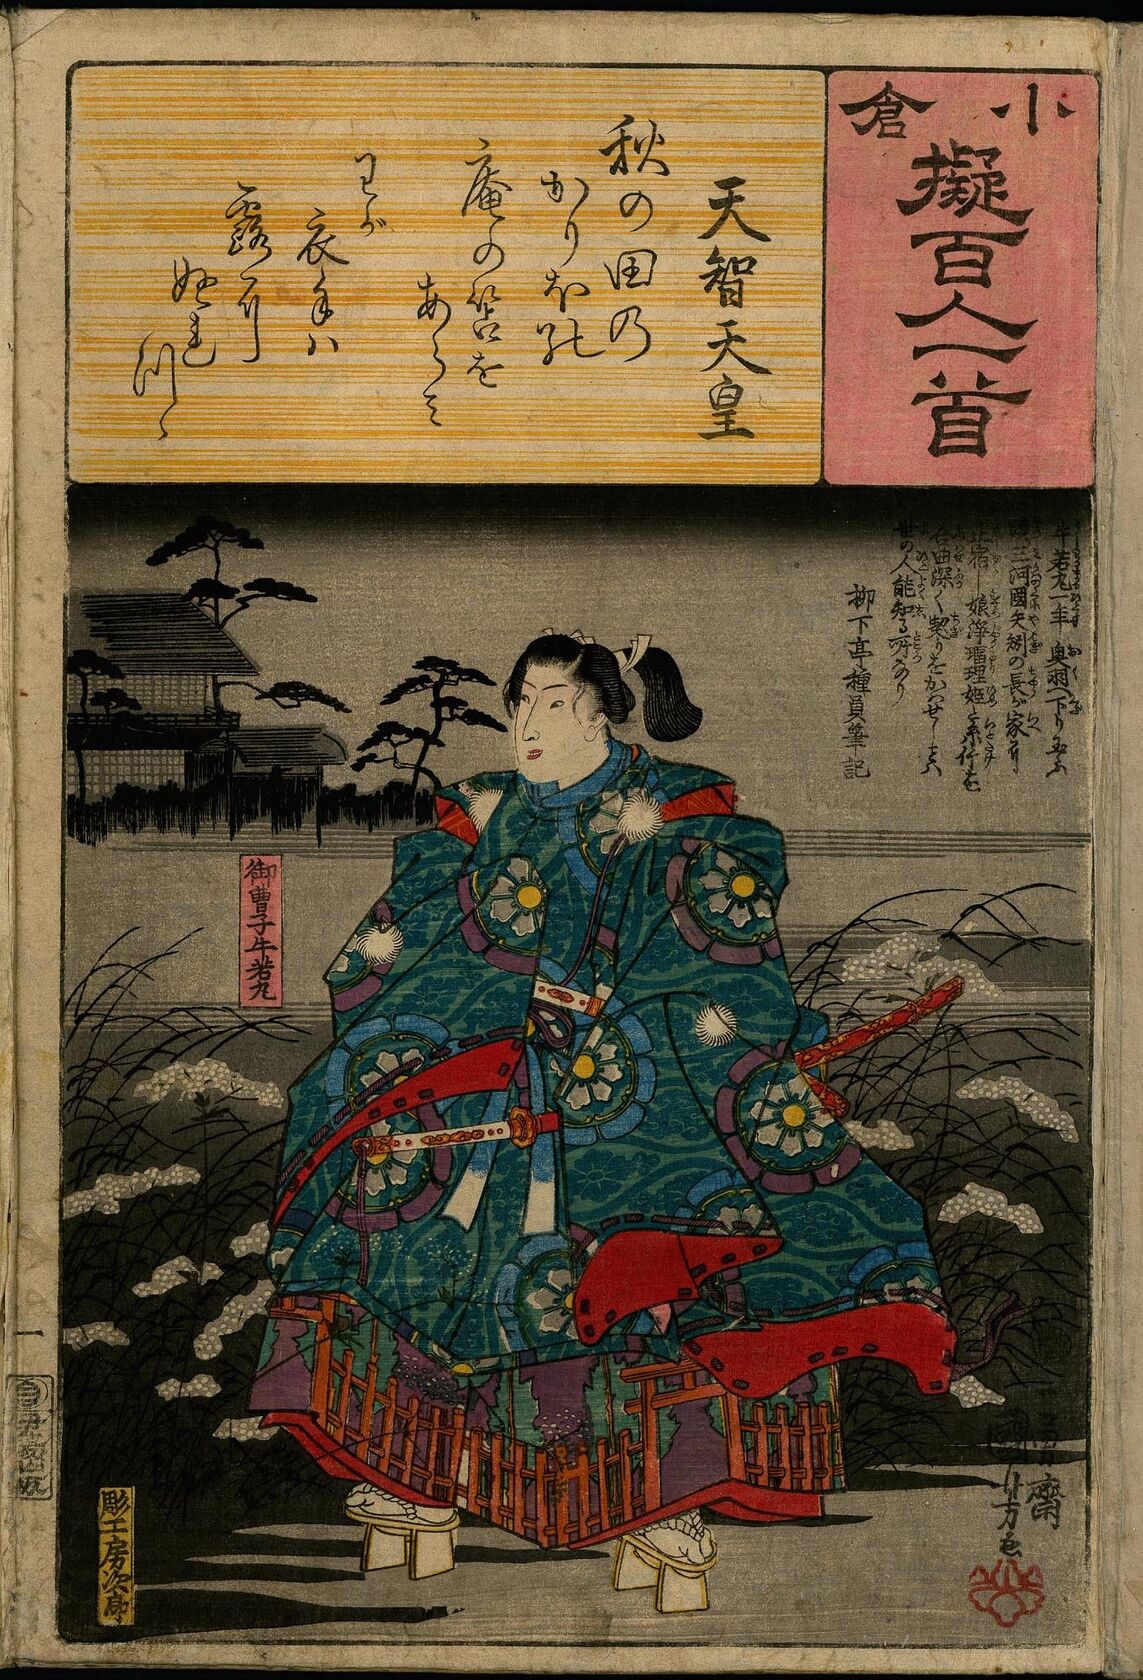 小倉
擬百人一首
天智天皇
秋の田乃
かりほの
庵の苫を
あらみ
わが
衣手ハ
露に
ぬれ
つゝ
牛若丸一年奥羽へ下り玉ふ
時三河國矢矧の長が家に
止宿し娘浄瑠理姫と糸竹を
合曲深く契りをかハせしとハ
世の人能知る所なり
柳下亭種員筆記
御曹子牛若丸
一
一勇齋
國芳画
彫工房次郎